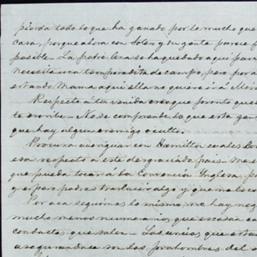 pierda todo lo que ha ganado por lo mucho que
casa, porque ahora con Soler y su gente parece
posible. La pobre Lena se ha quedado aqui para
necesita una temporadita de campo, pero por a
estando Mamá aqui ella no quiere ir a
Respecto a tu venida creo que pronto que
te escribe. No se comprende lo que esta
que hay algun enemigo oculto.
Procura averiguar con Hamilton cuales
esa respecto a este desgraciado pais. Me
que pueda tocar á la Comision Inglesa, p
y si se podrá traslucir algo y que
Por aca seguimos lo mismo, me hay neg
mucho menos numerario, que escasea ca
conducta que salen. Las unicas que esta
aseguran son los prohombres del